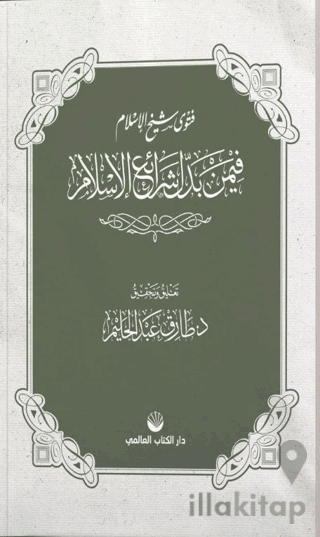 فتوى شيخ الإسلام
فيمن بدل شرائع الإسلام
تعليق وتحقيق
د. طارق عبد الحليم
دار الكتاب العالمي
illakitap